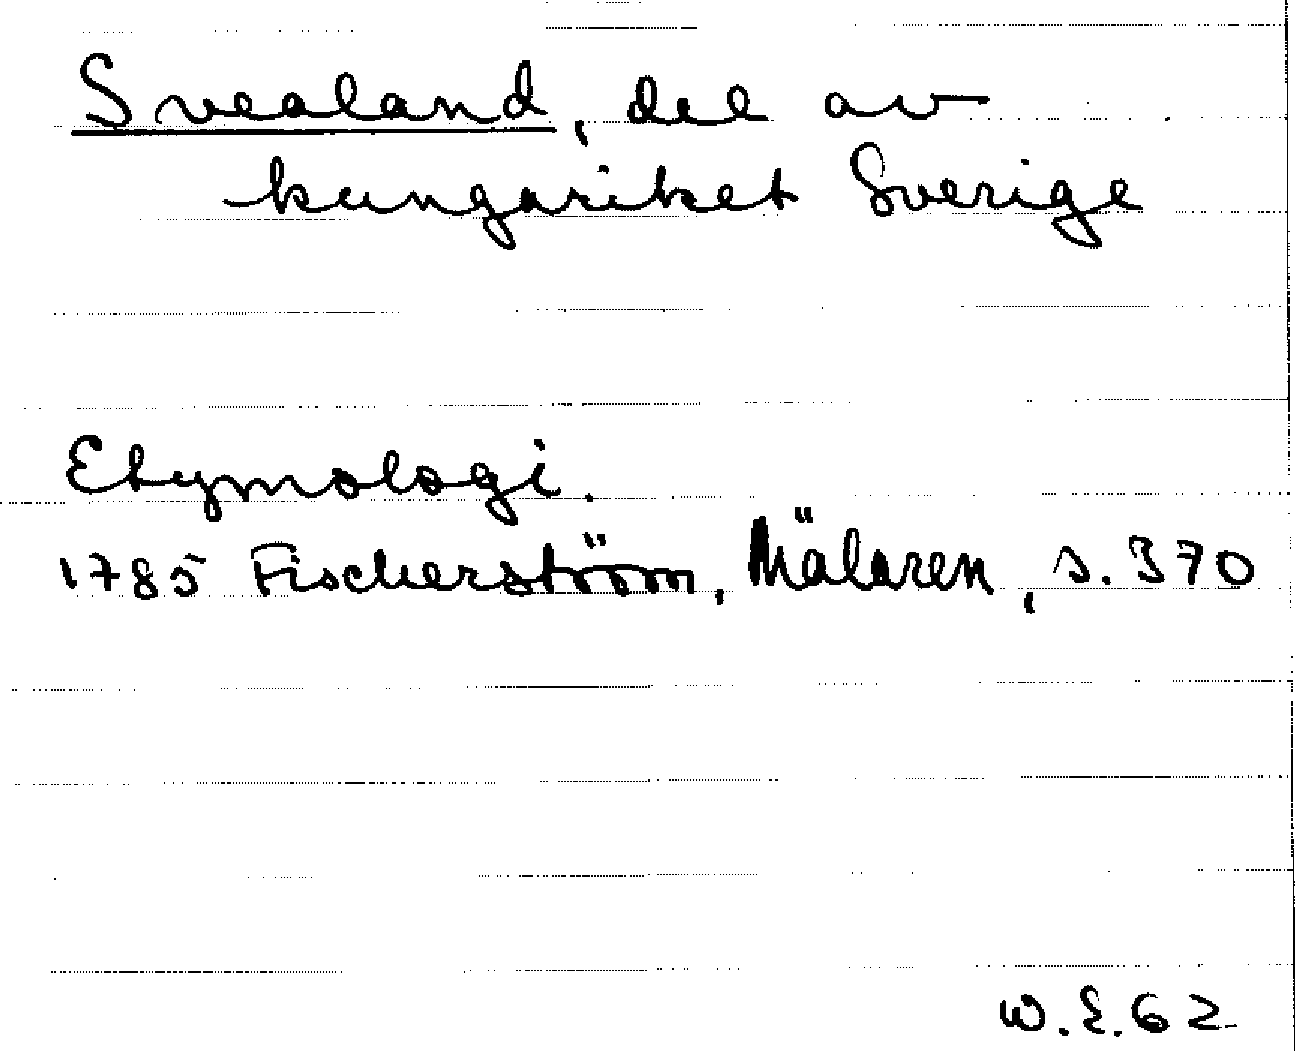 Svealand, del av
kungariket Sverige
Etymologi.
1785 Fischerström, Mälaren, s. 370
W.E.62